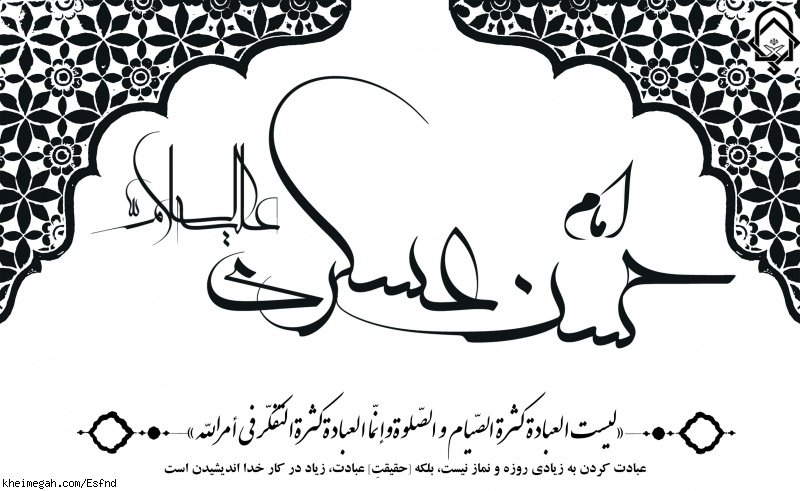 امام
حسن عسکری
علیه السلام
«لیست العبادة کثرة الصّیام و الصّلوة وإنّما العبادة کثرة التفکّر فی أمر الله»
عبادت کردن به زیادی روزه و نماز نیست، بلکه [حقیقتِ] عبادت، زیاد در کار خدا اندیشیدن است
kheimegah.com/Esfnd